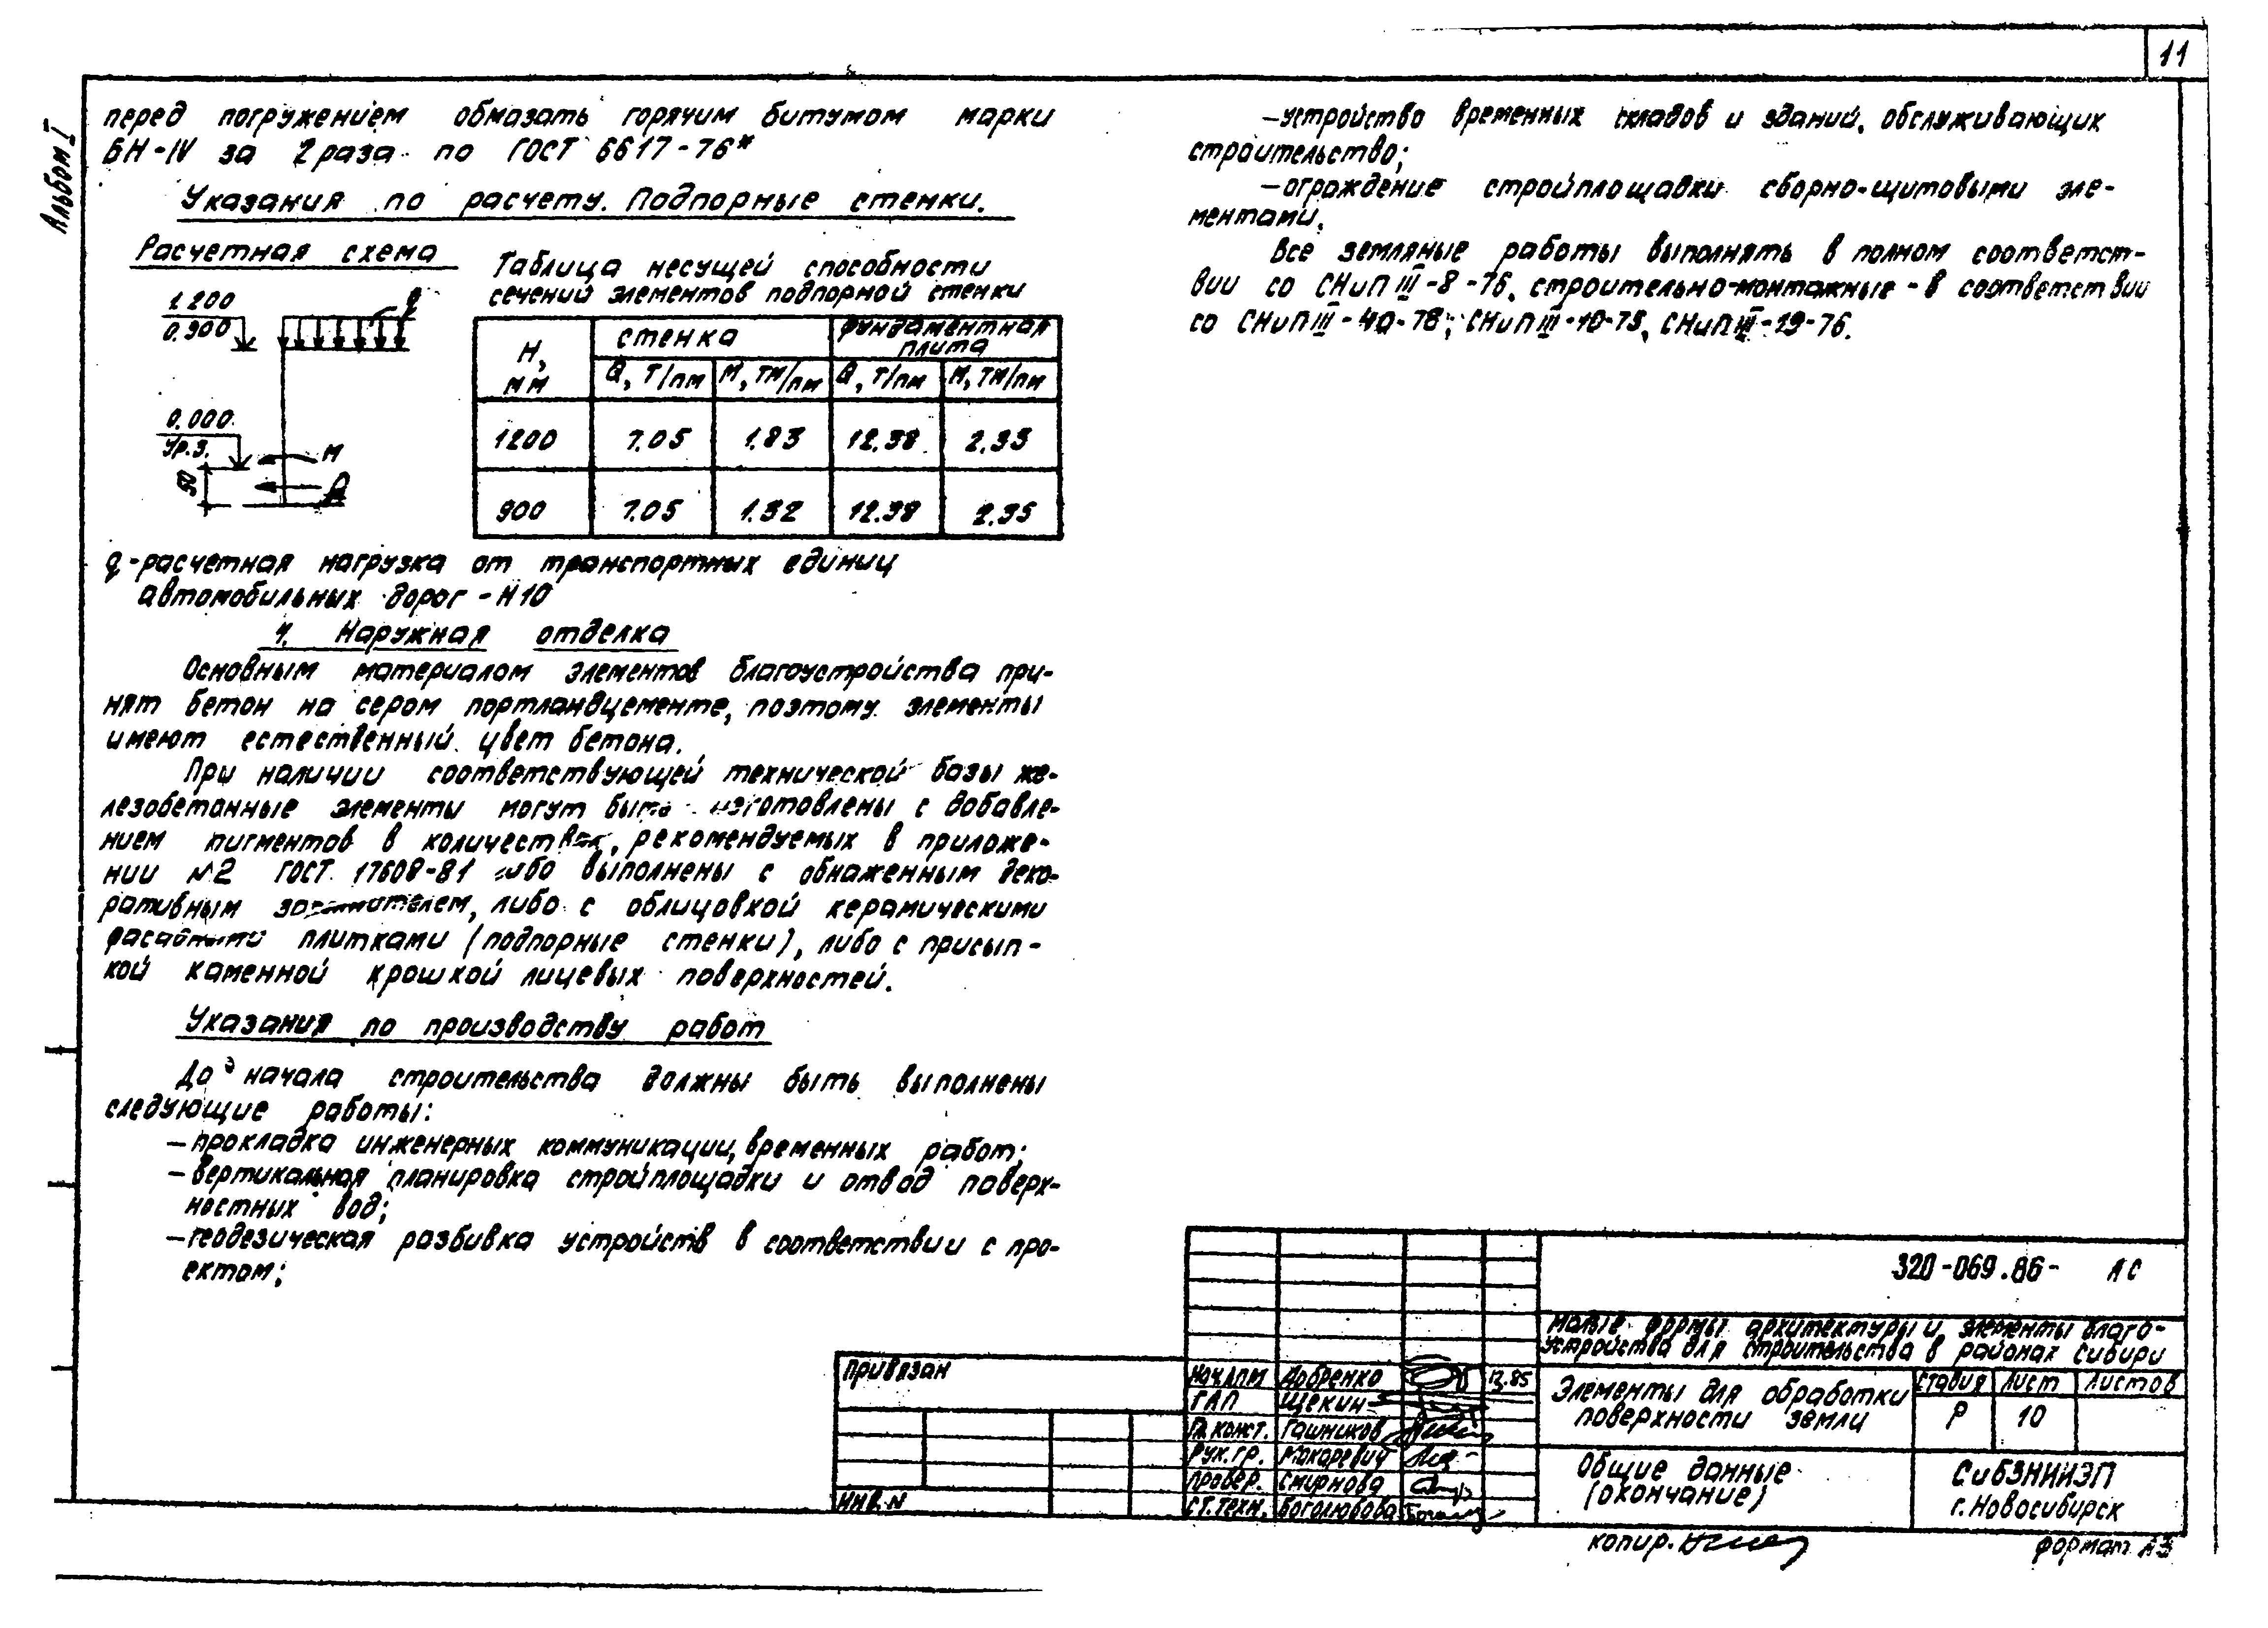 11
Альбом I
перед погружением обмазать горячим битумом марки
БН-IV за 2 раза по ГОСТ 6617-76*
Указания по расчету. Подпорные стенки.
Расчетная схема
1.200
0.900
q
0.000
Ур.з.
50
М
Q
Таблица несущей способности
сечений элементов подпорной стенки
Н, мм | стенка | фундаментная плита
Q, Т/пм | М, тм/пм | Q, т/пм | М, тм/пм
1200 | 7.05 | 1.83 | 12.38 | 2.35
900 | 7.05 | 1.32 | 12.38 | 2.35
q-расчетная нагрузка от транспортных единиц
автомобильных дорог - Н10
4. Наружная отделка
Основным материалом элементов благоустройства при-
нят бетон на сером портландцементе, поэтому элементы
имеют естественный цвет бетона.
При наличии соответствующей технической базы же-
лезобетонные элементы могут быть изготовлены с добавле-
нием пигментов в количествах, рекомендуемых в приложе-
нии №2 ГОСТ 17608-81 либо выполнены с обнаженным деко-
ративным заполнителем, либо с облицовкой керамическими
фасадными плитками (подпорные стенки), либо с присып-
кой каменной крошкой лицевых поверхностей.
Указания по производству работ
До начала строительства должны быть выполнены
следующие работы:
- прокладка инженерных коммуникации, временных работ;
- вертикальная планировка стройплощадки и отвод поверх-
ностных вод;
- геодезическая разбивка устройств в соответствии с про-
ектом;
- устройство временных складов и зданий, обслуживающих
строительство;
- ограждение стройплощадки сборно-щитовыми эле-
ментами.
Все земляные работы выполнять в полном соответст-
вии со СНиП III-8-76, строительно-монтажные - в соответствии
со СНиП III-40-78; СНиП III-10-75, СНиП III-19-76.
320-069.86- АС
Малые формы архитектуры и элементы благо-
устройства для строительства в районах Сибири
Привязан
Инв. N
Нач.АПМ Добренко 12.85
ГАП Щекин
Гл. конст. Гашников
Рук. гр. Макаревич
Провер. Смирнова
Ст. техн. Боголюбова
Элементы для обработки
поверхности земли
Стадия | Лист | Листов
Р | 10
Общие данные
(окончание)
СибЗНИИЭП
г. Новосибирск
копир.
формат А3